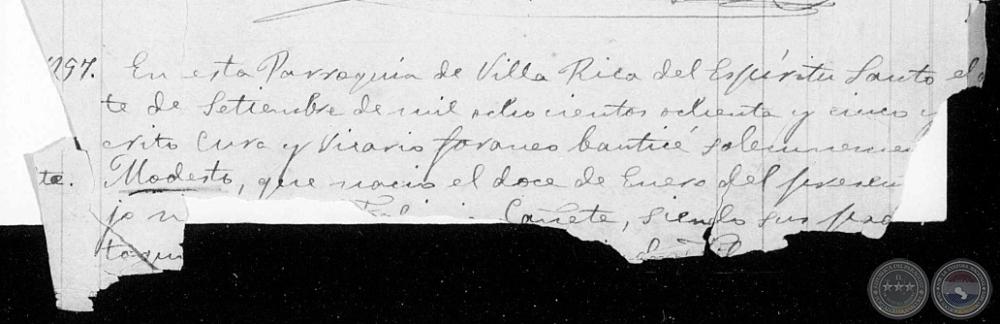 297. En esta Parroquia de Villa Rica del Espíritu Santo el
te de Setiembre de mil ochocientos ochenta y cinco y
crito Cura y Vicario foraneo bauticé solemnemen
te. Modesto, que nació el doce de Enero del presen
jo n Cañete, siendo sus pad